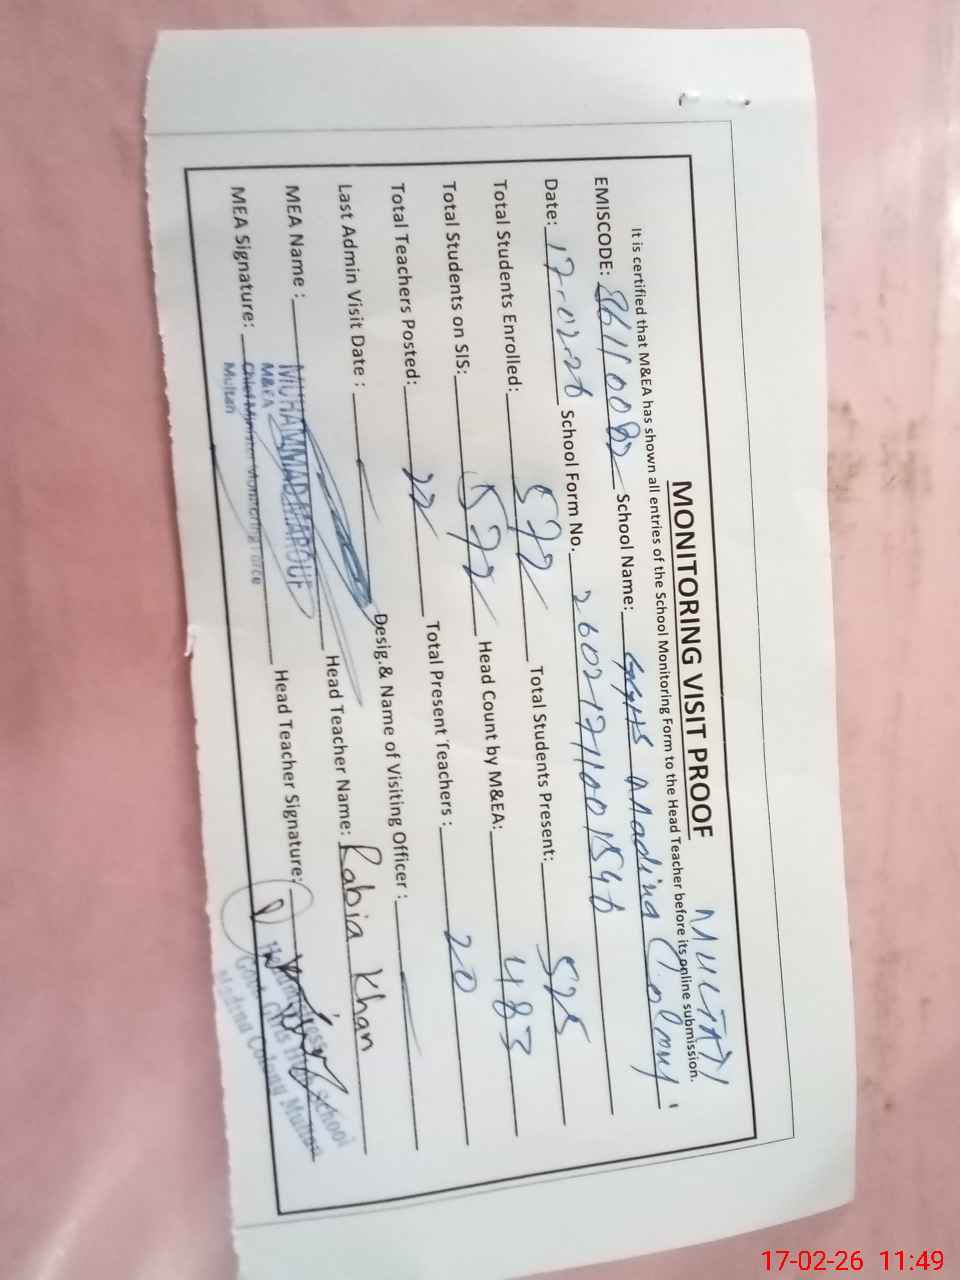 MONITORING VISIT PROOF
MULTAN
It is certified that M&EA has shown all entries of the School Monitoring Form to the Head Teacher before its online submission.
EMISCODE: School Name: Madina Colony
Date: 17-02-26 School Form No.
Total Students Enrolled: 572 Total Students Present: 525
Total Students on SIS: 572 Head Count by M&EA: 483
Total Teachers Posted: 22 Total Present Teachers : 20
Last Admin Visit Date : Desig.& Name of Visiting Officer :
MEA Name : MUHAMMAD MAROUF Head Teacher Name: Rabia Khan
MEA Signature: Head Teacher Signature:
M&EA
Chief Minister Monitoring Force
Multan
Govt. Girls High School
Madina Colony Multan
17-02-26 11:49